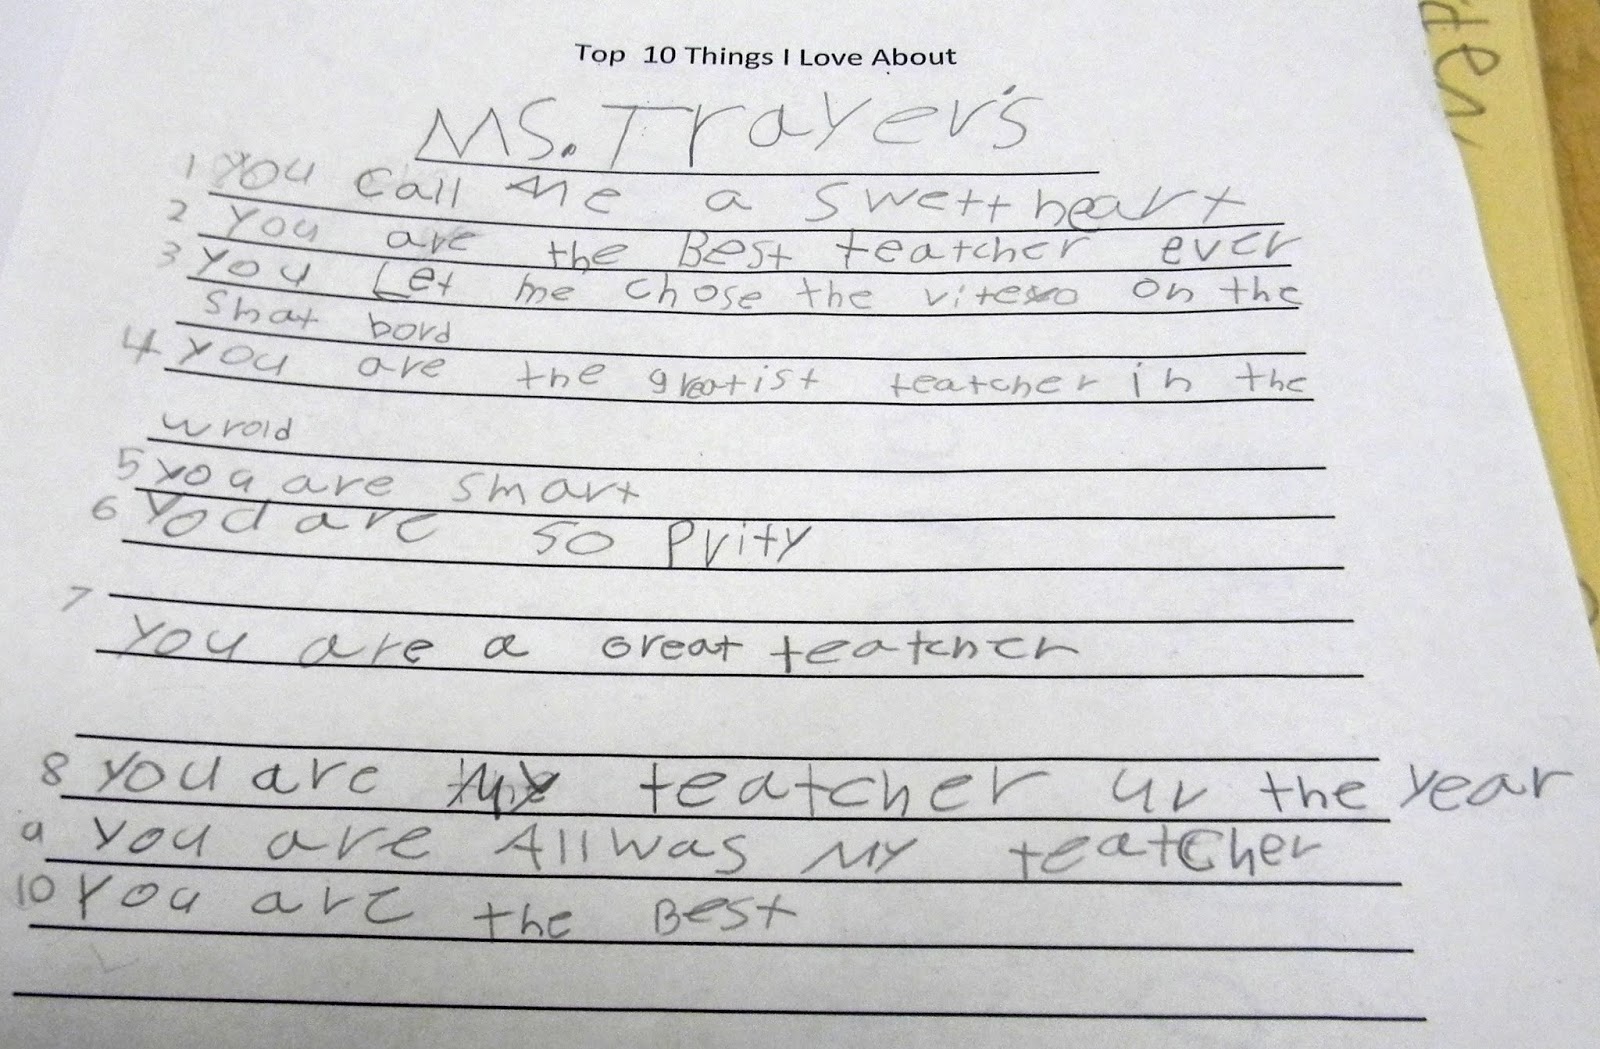 Top 10 Things I Love About
MS. Trayer's
1 You Call Me a swettheart
2 You are the Best teatcher ever
3 You Let me chose the viteo on the
Smat bord
4 You are the greatist teatcher in the
wrold
5 you are smart
6 You are so Prity
7
You are a Great teatcher
8 You are teatcher uv the year
9 You are Allwas My teatcher
10 You are the Best